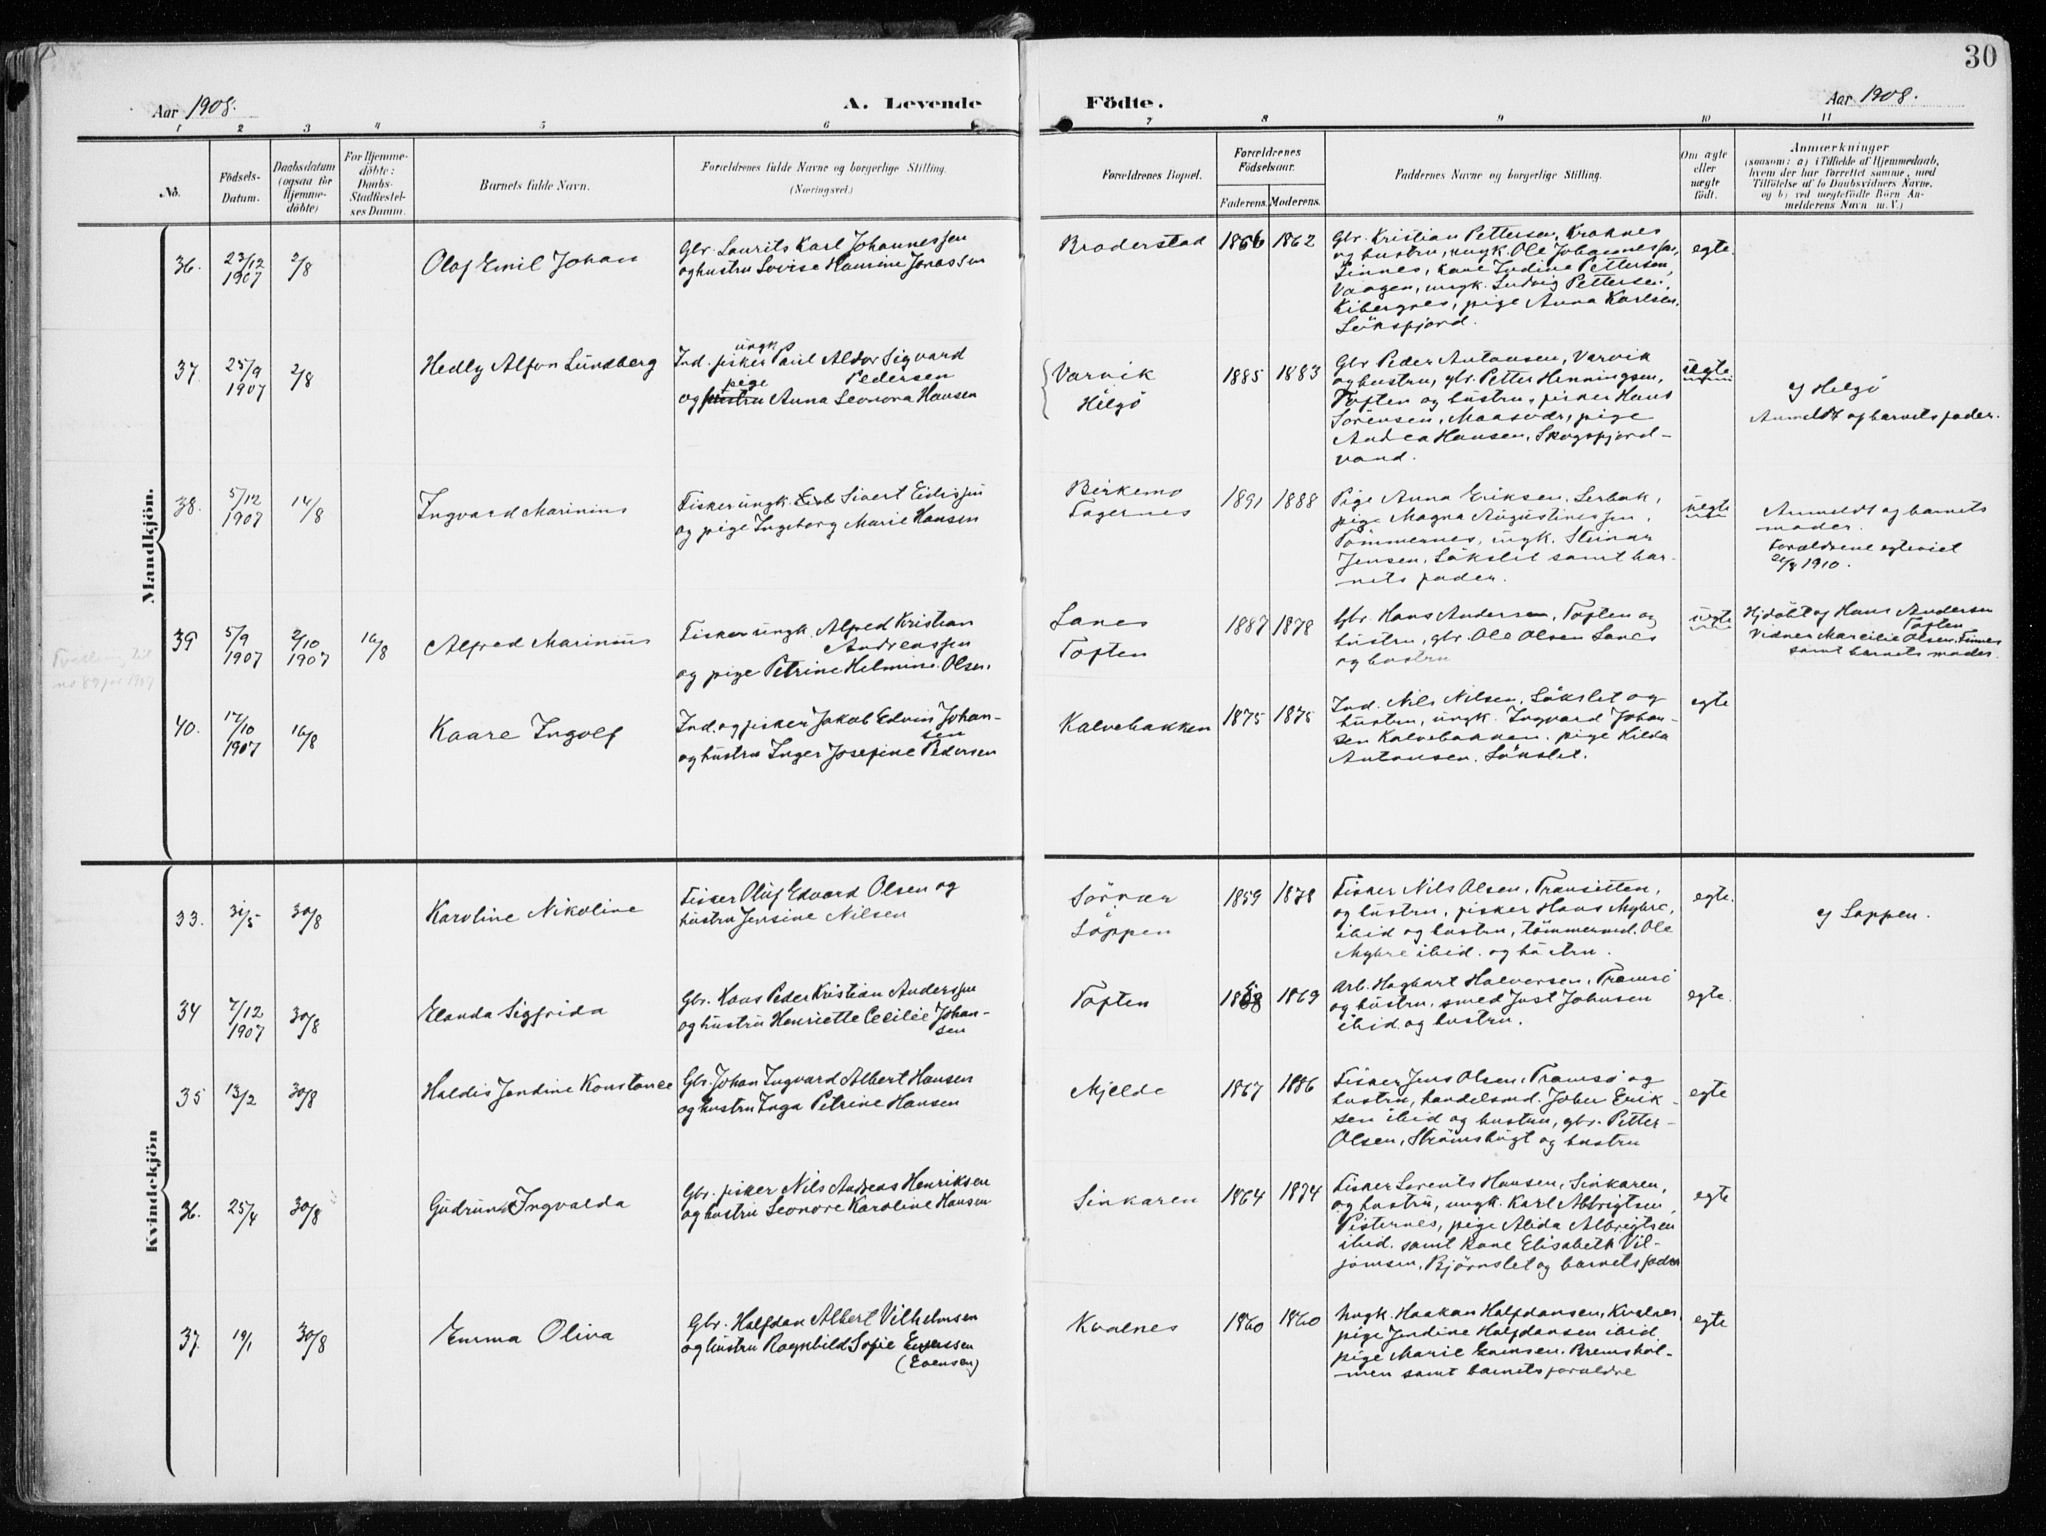 30
Aar 1908.
A. Levende
Födte.
Aar 1908.
1 2 3 4 5 6 7 8 9 10 11
No.
Födsels-
Datum.
Daabsdatum
(ogsaa for
Hjemme-
döbte)
For Hjemme-
döbte:
Daabs-
Stadfæstel-
ses Datum.
Barnets fulde Navn.
Forældrenes fulde Navne og borgerlige Stilling.
(Næringsvei.)
Forældrenes Bopæl.
Forældrenes
Födselsaar.
Faderens. Moderens.
Faddernes Navne og borgerlige Stilling.
Om ægte
eller
uægte
födt.
Anmærkninger
(saasom: a) i Tilfælde af Hjemmedaab,
hvem der har forrettet samme, med
Tilföielse af to Daabsvidners Navne,
og b) ved uægtefödte Börn An-
melderens Navn m. V.)
Mandkjön.
36.
23/12
1907
2/8
Olaf Emil Johan
Gbr. Laurits Karl Johannessen
og hustru Lovise Hansine Jonassen
Broderstad
1866
1862
Gbr. Kristian Pettersen, Kraknes
og hustru, ungk. Ole Johannessen,
Finnes, kone Indine Pettersen,
Vaagen, ungk. Ludvig Pettersen,
Kibergnes, pige Anna Karlsen,
Löksfjord.
egte.
37.
25/9
1907
2/8
Hedly Alfon Lundberg
ungk.
Ind. fisker Paul Aldor Sigvard
pige Pedersen
og hustru Anna Leonora Hansen
Varvik
Helgö
1885
1883
Gbr Peder Antonsen, Varvik
og hustru, gbr. Petter Henningsen,
Toften og hustru, fisker Hans
Sörensen, Maasvær, pige
Andrea Hansen, Skogsfjord-
vand.
uegte
cf Helgö
Anmeldt af barnets fader.
38.
5/12
1907
14/8
Ingvard Marinius
Fisker ungk. Sivert Eidissen
og pige Ingeborg Marie Hansen
Birkemo
Fagernes
1891
1888
Pige Anna Eriksen, Lerbak,
pige Magna Augustinessen,
Tömmernes, ungk. Steinar
Jensen, Lökslet samt bar-
nets fader.
uegte
Anmeldt af barnets
moder.
Forældrene egteviet
1910.
Tvilling til
no 89 for 1907
39
5/9
1907
2/10
1907
16/8
Alfred Marinius
Fisker ungk. Alfred Kristian
Andreassen
og pige Petrine Helmine Olsen.
Lanes
Toften
1887
1878
Gbr. Hans Andersen, Toften og
hustru, gbr. Ole Olsen Lanes
og hustru
uegte
Hjdöbt af Hans Andersen
Toften
Vidner Marcilie Olsen, Finnes
samt barnets moder.
40.
17/10
1907
16/8
Kaare Ingolf
Ind. og fisker Jakob Edvin Johan-
sen
og hustru Inger Josefine Pedersen
Kalvebakken
1875
1875
Ind. Nils Nilsen, Lökslet og
hustru, ungk. Ingvard Johan-
sen Kalvebakken, pige Hilda
Antonsen, Lökslet.
egte
Kvindekjön
33.
31/5
30/8
Karoline Nikoline
Fisker Oluf Edvard Olsen og
hustru Jensine Nilsen
Sörvær
i
Loppen
1859
1878
Fisker Nils Olsen, Transetten,
og hustru, fisker Hans Myhre,
ibid og hustru, tömmermd. Ole
Myhre ibid. og hustru.
egte.
cf Loppen.
34
7/12
1907
30/8
Elanda Sigfrida
Gbr. Hans Peder Kristian Anderssen
og hustru Henriette Cecilie Johan-
sen
Toften
1869
Arb. Hagbart Halversen, Tromsö
og hustru, smed Just Johnsen
ibid og hustru.
egte.
35
13/2
30/8
Haldis Jendine Konstance
Gbr. Johan Ingvard Albert Hansen
og hustru Inga Petrine Hansen
Mjelde
1867
1886
Fisker Jens Olsen, Tromsö og
hustru, handelsmd. Joher Erik-
sen ibid og hustru, gbr. Petter
Olsen, Strömsbugt og hustru
egte
36.
25/4
30/8
Gudrun Ingvalda
Gbr. fisker Nils Andreas Henriksen
og hustru Leonore Karoline Hansen
Sinkaren
1864
1874
Fisker Lorents Hansen, Sinkaren,
og hustru, ungk. Karl Albrigtsen,
Pisternes, pige Alida Albrigtsen
ibid. samt kone Elisabeth Vil-
jomsen, Björnslet og barnets fader
egte
37.
19/1
30/8
Emma Oliva
Gbr. Halfdan Albert Vilhelmsen
og hustru Ragnhild Sofie Evenssen
(Evensen)
Kvalnes
1860
1860
Ungk. Haakon Halfdansen, Kvalnes,
pige Jendine Halfdansen ibid,
pige Marie Evensen, Bremshol-
men samt barnets forældre
egte